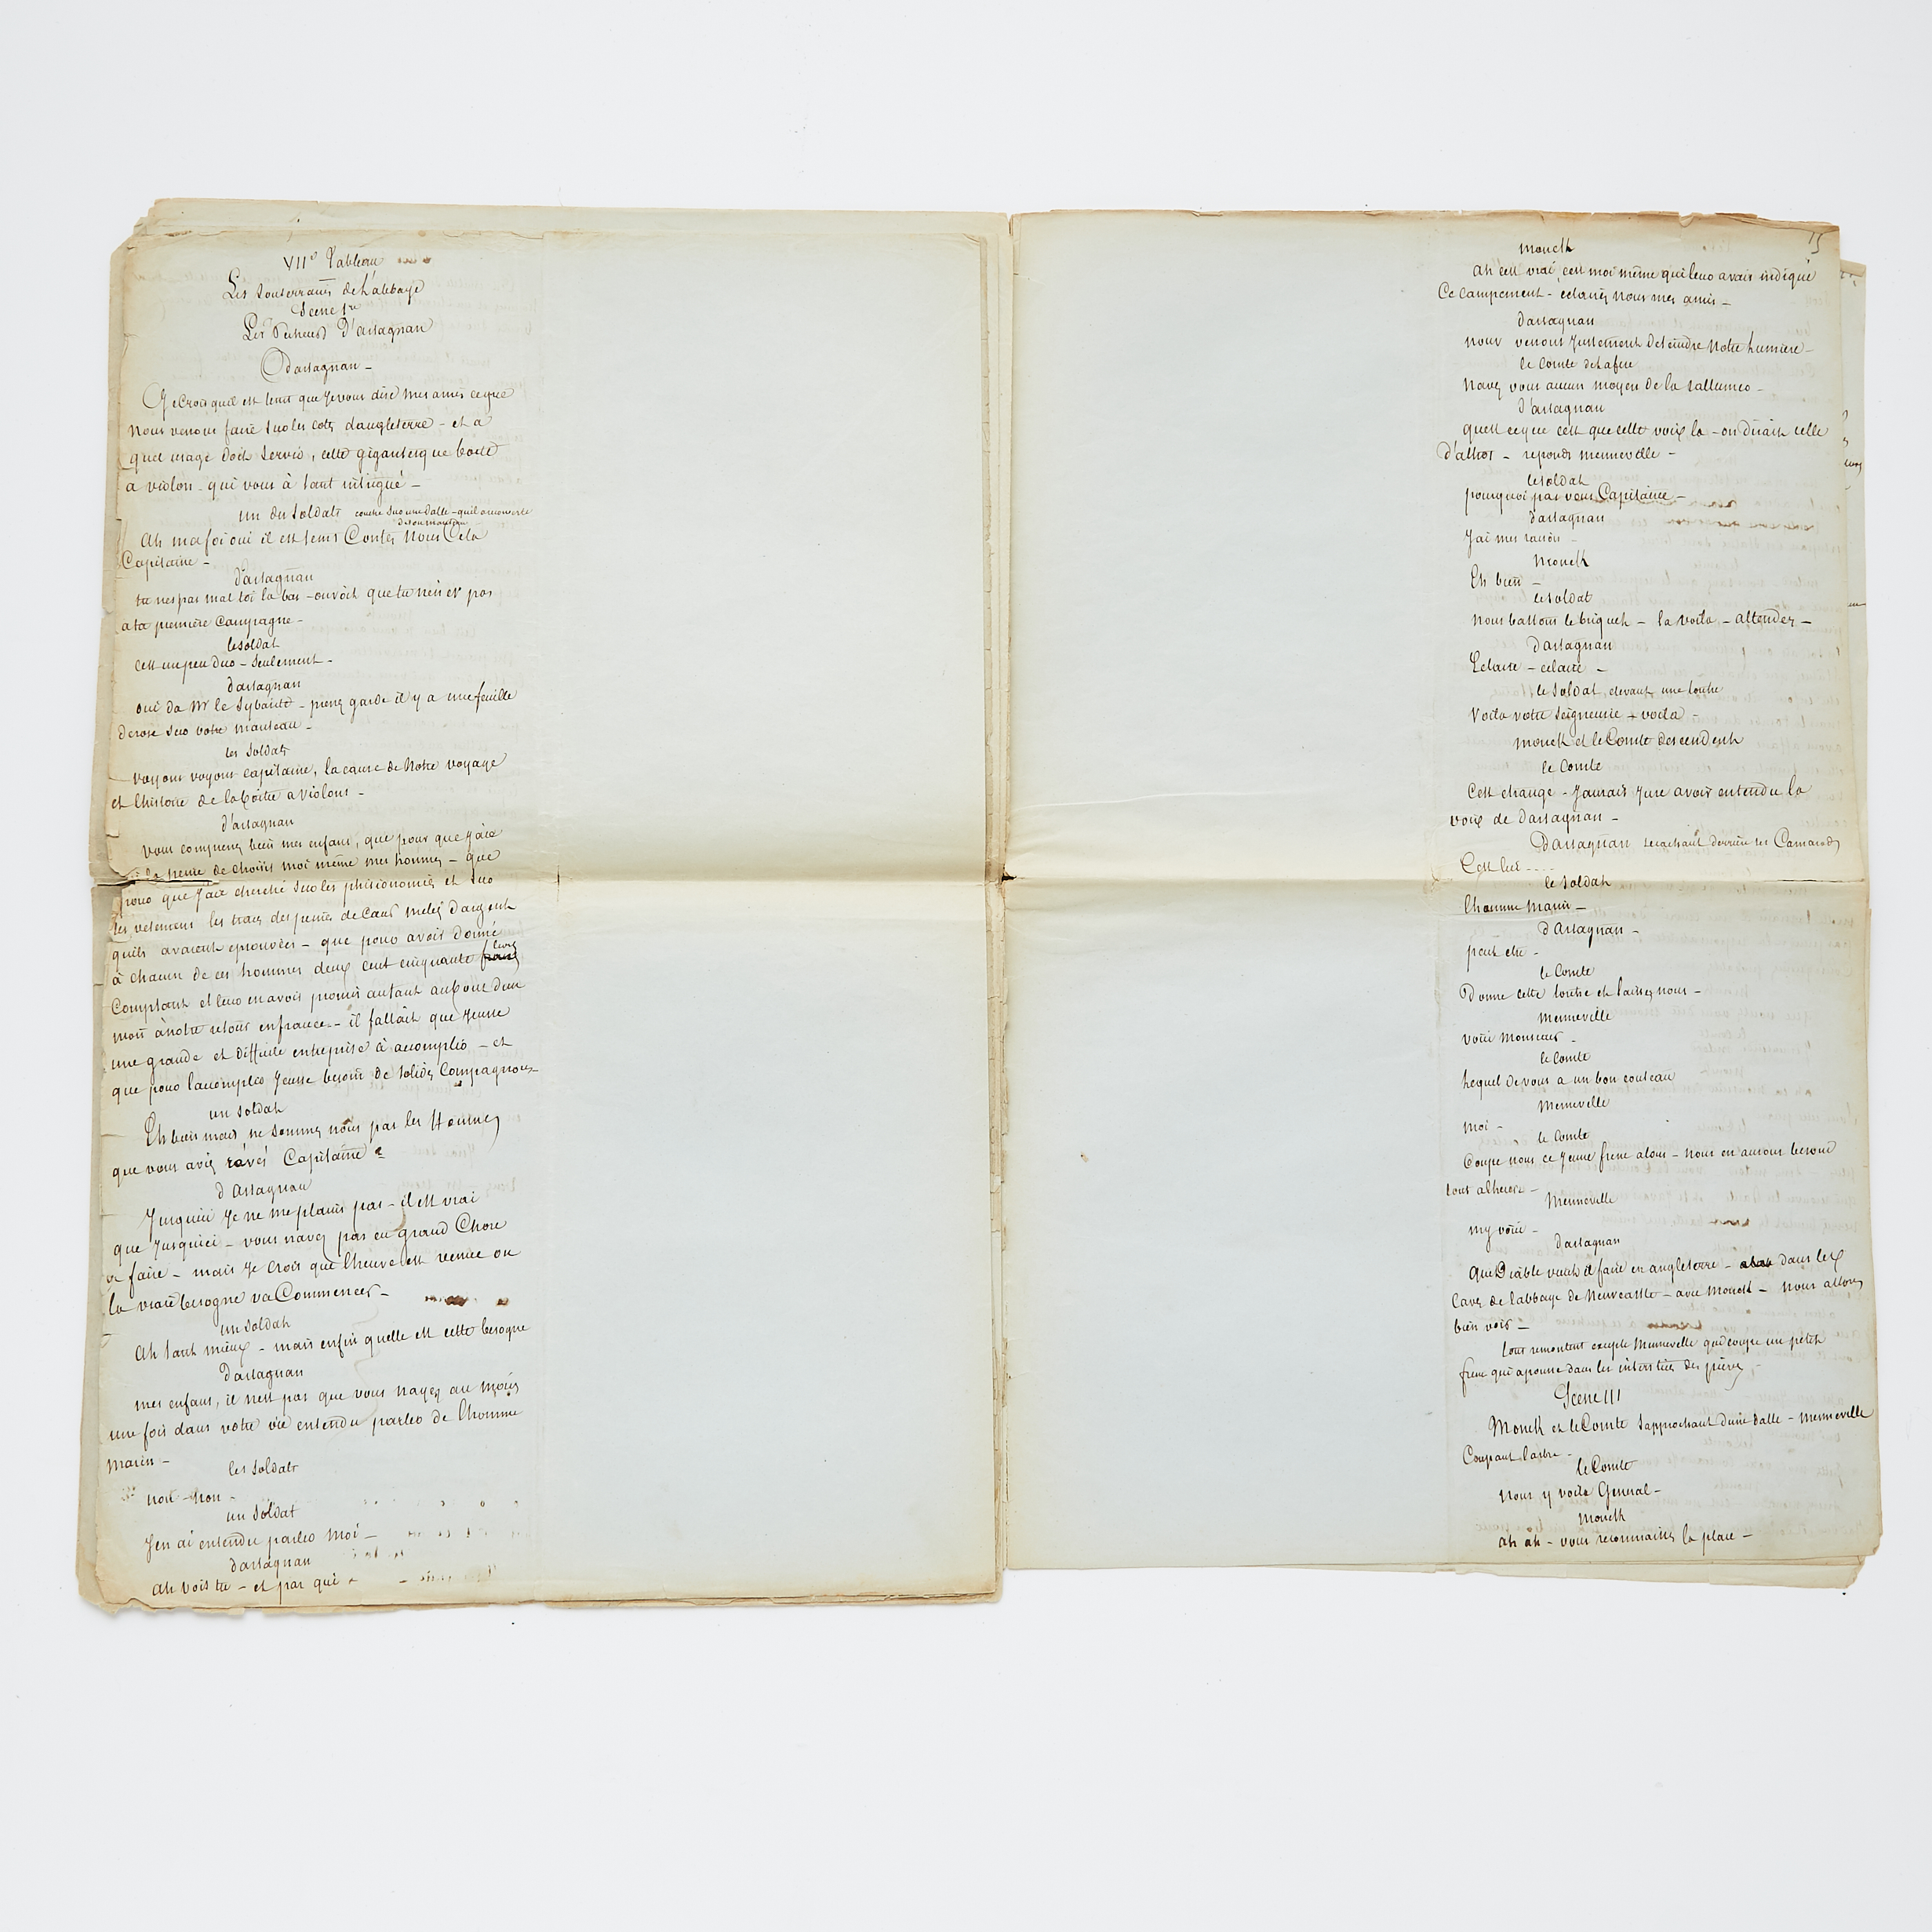 VIIe Tableau
Les Souterrains de l'abbaye
Scène 1re
Les Pêcheurs D'artagnan
Dartagnan –
Je Crois quil est tems que Je vous dise mes amis ceque
Nous venons faire Sur les cotes dangleterre – et a
quel usage Doit Servir, cette gigantesque boete
a violon – qui vous à tant intrigué –
un des Soldats couché Sur une Dalle – quil a couverte
de son manteau
Ah ma foi oui il est tems Contez Nous Cela
Capitaine –
d'artagnan
tu nes pas mal toi la bas – on voit que tu nen es pas
a ta première Campagne –
le soldat
Cest un peu Dur – Seulement –
dartagnan
oui da Mr le Sybarite – prenez garde il y a une feuille
de rose Sur votre manteau –
les Soldats
voyons voyons capitaine, la cause de Notre voyage
et lhistoire de la boëte a violons –
d'artagnan
vous comprenez bien mes enfans, que pour que Jaie
la peine de choisir moi même mes hommes – que
pour que Jaie cherché Sur les phisionomies et Sur
les vetemens les traces des peines de Cœur melées Dargent
quils avaient eprouvées – que pour avoir donné
à chacun de ces hommes deux cent cinquante livres
Comptant et leur en avoir promis autant au bout dun
mois à notre retour en france – il fallait que Jeusse
une grande et Difficile entreprise à accomplir – et
que pour laccomplir Jeusse besoin de Solides Compagnons –
un Soldat
Eh bien mais ne Sommes nous pas les Hommes
que vous aviez rêvés Capitaine ?
d'Artagnan
Jusquici Je ne me plains pas – il est vrai
que Jusquici – vous navez pas eu grand Chose
a faire – mais Je Crois que lheure est venue ou
la vraie besogne va Commencer –
un Soldat
Ah tant mieux – mais enfin quelle est cette besogne
Dartagnan
mes enfans, il nest pas que vous nayez au moins
une fois dans votre vie entendu parler de lhomme
marin –
les Soldats
non – non –
un Soldat
Jen ai entendu parler Moi –
dartagnan
Ah vois tu – et par qui
15
monck
Ah cest vrai, cest moi même qui leur avais indiqué
Ce campement – eclairez nous mes amis –
dartagnan
nous venons Justement Deteindre Notre lumiere –
le Comte de la fere
Navez vous aucun moyen de la rallumer –
d'artagnan
quest ceque cest que cette voix la – on dirait celle
d'athos – reponds menneville –
le soldat
pourquoi pas vous Capitaine –
dartagnan
Jai mes raisons
Monck
Eh bien –
le soldat
Nous battons le briquet – la voila – attendez –
Dartagnan
Eclaire – eclaire –
le Soldat, elevant une torche
Voila votre Seigneurie – voila –
monck et le Comte descendent
le Comte
Cest etrange – Jaurais Juré avoir entendu la
voix de Dartagnan –
Dartagnan se cachant derriere ses Camarades
Cest lui ....
le Soldat
lhomme Marin –
d'Artagnan –
peut etre –
le Comte
Donne cette torche et laissez nous –
Menneville
voici Monsieur –
le Comte
lequel de vous a un bon couteau
Menneville
Moi –
le Comte
Coupe nous ce Jeune frene alors – nous en aurons besoin
tout alheure –
Menneville
my voici –
dartagnan
Que Diable vient il faire en angleterre – dans les
Caves de labbaye de Newcastle – avec Monck – Nous allons
bien voir –
tous remontent excepté Menneville qui coupe un petit
frene qui a poussé dans les interstices des pierres –
Scene III
Monck et le Comte Sapprochant dune dalle – Menneville
Coupant larbre –
le Comte
Nous y voila General –
Monck
ah ah – vous reconnaissez la place –